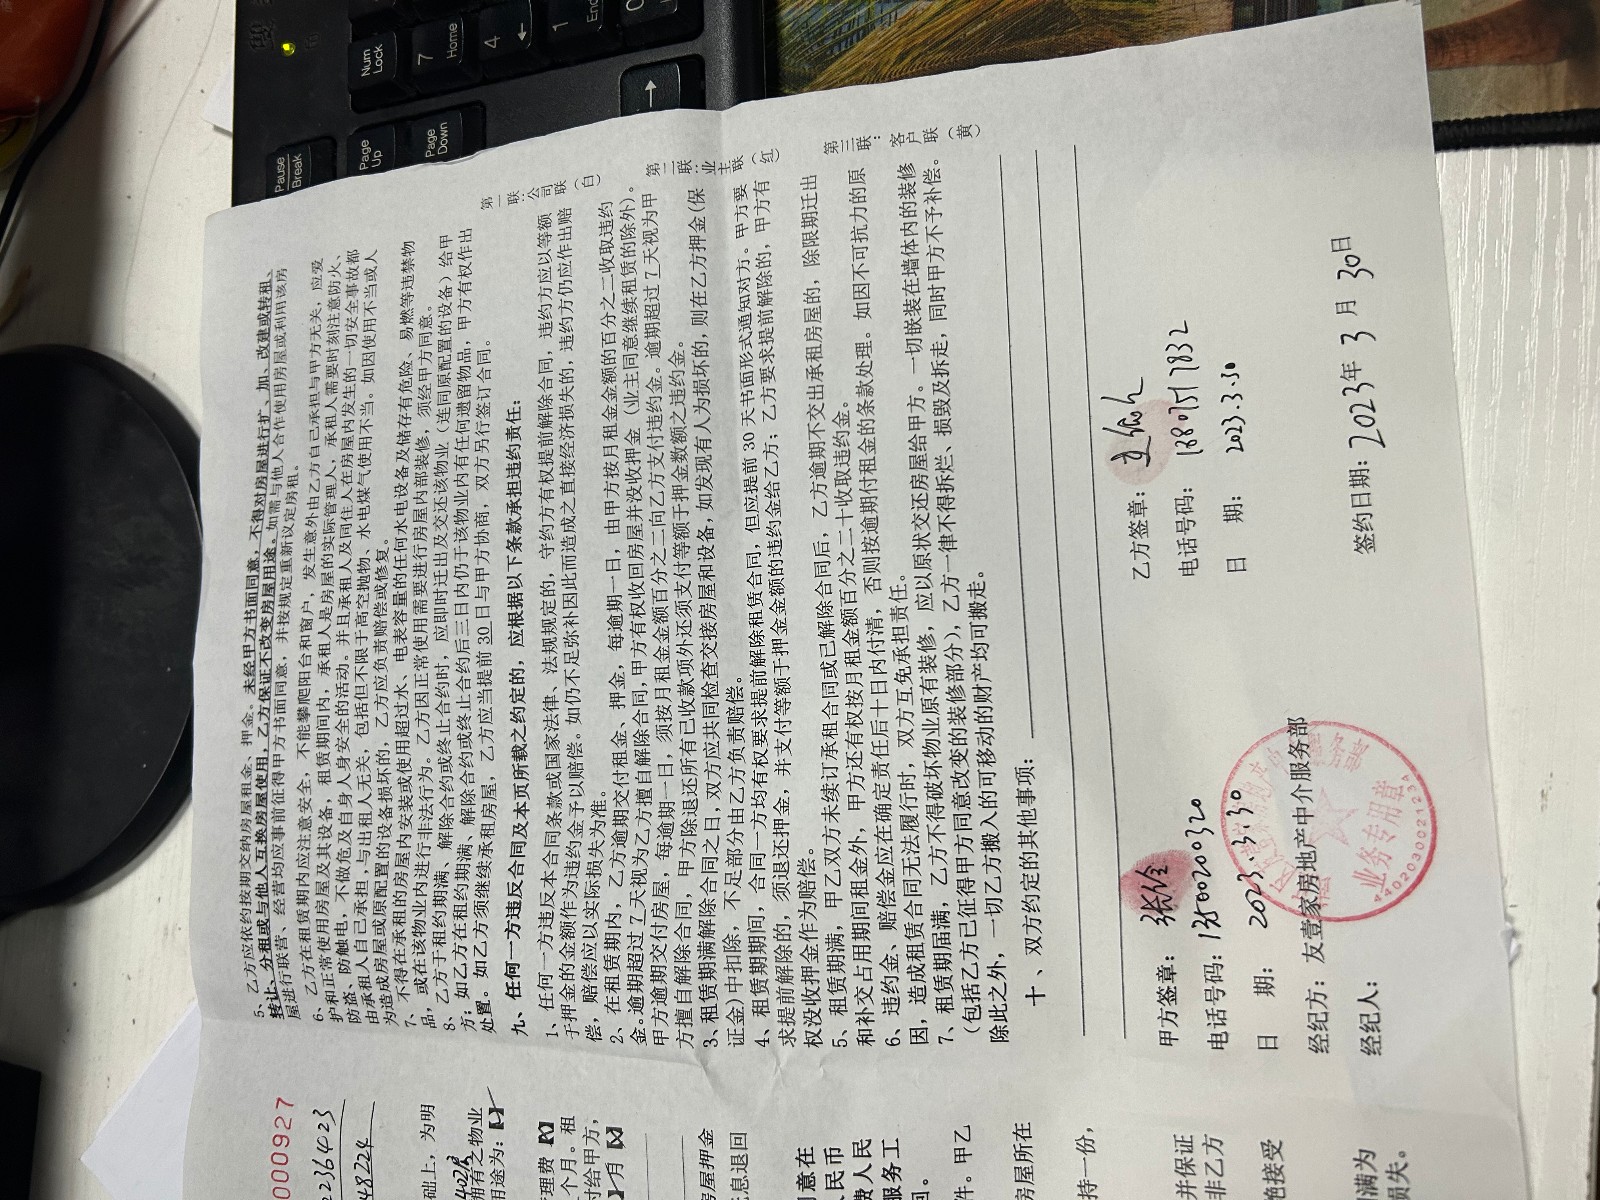 5、乙方应依约按期交纳房屋租金、押金。未经甲方书面同意，不得对房屋进行扩、加、改建或转租、
转让、分租或与他人互换房屋使用，乙方保证不改变房屋用途。如需与他人合作使用房屋或利用该房
屋进行联营、经营均应事前征得甲方书面同意，并按规定重新议定房租。
6、乙方在租赁期内应注意安全，不能攀爬阳台和窗户，发生意外由乙方自己承担与甲方无关，应爱
护和正常使用房屋及其设备，租赁期间内，承租人是房屋的实际管理人，承租人需要时刻注意防火、
防盗、防触电，不做危及自身人身安全的活动。并且承租人及同住人在房屋内发生的一切安全事故都
由承租人自己承担，与出租人无关，包括但不限于高空抛物、水电煤气使用不当。如因使用不当或人
为造成房屋或原配置的设备损坏的，乙方应负责赔偿或修复。
7、不得在承租的房屋内安装或使用超过水、电表容量的任何水电设备及储存有危险、易燃等违禁物
品，或在该物业内进行非法行为。乙方因正常使用需要进行房屋内部装修，须经甲方同意。
8、乙方于租约期满、解除合约或终止合约时，应即时迁出及交还该物业（连同原配置的设备）给甲
方；如乙方在租约期满、解除合约或终止合约后三日内仍于该物业内有任何遗留物品，甲方有权作出
处置。如乙方须继续承租房屋，乙方应当提前 30 日与甲方协商，双方另行签订合同。
九、任何一方违反合同及本页所载之约定的，应根据以下条款承担违约责任：
1、任何一方违反本合同条款或国家法律、法规规定的，守约方有权提前解除合同，违约方应以等额
于押金的金额作为违约金予以赔偿。如仍不足弥补因此而造成之直接经济损失的，违约方仍应作出赔
偿，赔偿应以实际损失为准。
2、在租赁期内，乙方逾期交付租金、押金，每逾期一日，由甲方按月租金金额的百分之二收取违约
金。逾期超过 7 天视为乙方擅自解除合同，甲方有权收回房屋并没收押金（业主同意继续租赁的除外）。
甲方逾期交付房屋，每逾期一日，须按月租金金额百分之二向乙方支付违约金。逾期超过 7 天视为甲
方擅自解除合同，甲方除退还所有已收款项外还须支付等额于押金数额之违约金。
3、租赁期满解除合同之日，双方应共同检查交接房屋和设备，如发现有人为损坏的，则在乙方押金（保
证金）中扣除，不足部分由乙方负责赔偿。
4、租赁期期间，合同一方均有权要求提前解除租赁合同，但应提前 30 天书面形式通知对方。甲方要
求提前解除的，须退还押金，并支付等额于押金金额的违约金给乙方；乙方要求提前解除的，甲方有
权没收押金作为赔偿。
5、租赁期满，甲乙双方未续订承租合同或已解除合同后，乙方逾期不交出承租房屋的，除限期迁出
和补交占用期间租金外，甲方还有权按月租金额百分之二十收取违约金。
6、违约金、赔偿金应在确定责任后十日内付清，否则按逾期付租金的条款处理。如因不可抗力的原
因，造成租赁合同无法履行时，双方互免承担责任。
7、租赁期届满，乙方不得破坏物业原有装修，应以原状交还房屋给甲方。一切嵌装在墙体内的装修
（包括乙方已征得甲方同意改变的装修部分），乙方一律不得拆烂、损毁及拆走，同时甲方不予补偿。
除此之外，一切乙方搬入的可移动的财产均可搬走。
十、双方约定的其他事项：
甲方签章：
电话号码：13500200320
日 期：2023.3.30
经纪方：友壹家房地产中介服务部
经纪人：
乙方签章：
电话号码：18807517832
日 期：2023.3.30
签约日期：2023年 3 月 30日
业务专用章
4402030021234
第一联：公司联（白）
第二联：业主联（红）
第三联：客户联（黄）
000927
2236423
48224
础上，为明
拥有之物业
用途为：【
管理费【
个月。租
付给甲方，
】月【
房屋押金
息退回
同意在
人民币
费人民
服务工
回。
件。甲乙
房屋所在
持一份，
并保证
非乙方
绝接受
期满为
损失。
Pause
Break
Page
Up
Page
Down
Num
Lock
7
Home
4
←
1
End
0
→